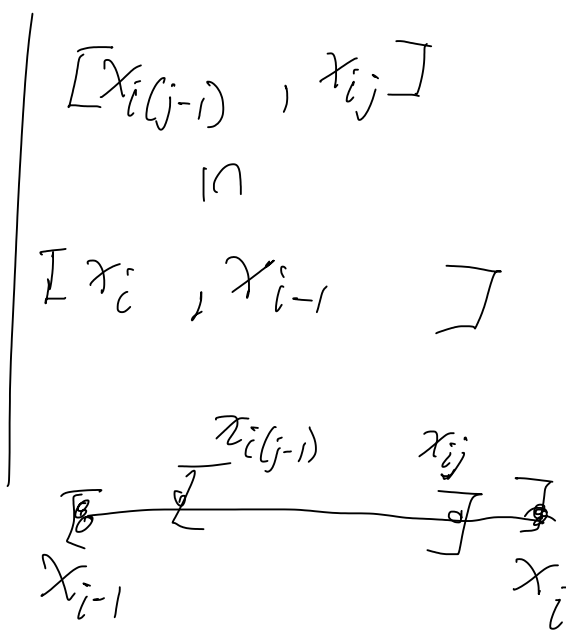 [x_{i(j-1)} , x_{ij}]
⊆
[x_i , x_{i-1} ]
x_{i(j-1)} x_{ij}
x_{i-1} x_i